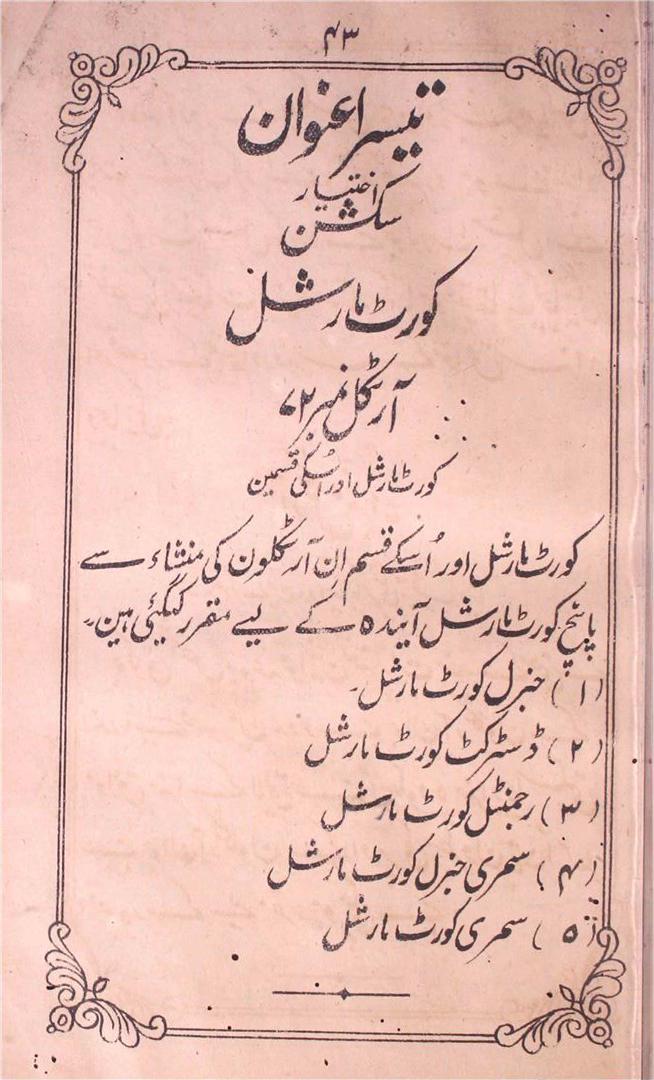 ۴۳
تیسرا عنوان
اختیار
سکشن
کورٹ مارشل
آرٹکل نمبر ۷۲
کورٹ مارشل اور اسکی قسمین
کورٹ مارشل اور اُسکے قسم ان آرٹکلون کی منشاء سے
پانچ کورٹ مارشل آیندہ کے لیے مقرر کیگئی ہین۔
(۱) جنرل کورٹ مارشل۔
(۲) ڈسٹرکٹ کورٹ مارشل
(۳) رجمنٹل کورٹ مارشل
(۴) سمری جنرل کورٹ مارشل
(۵) سمری کورٹ مارشل